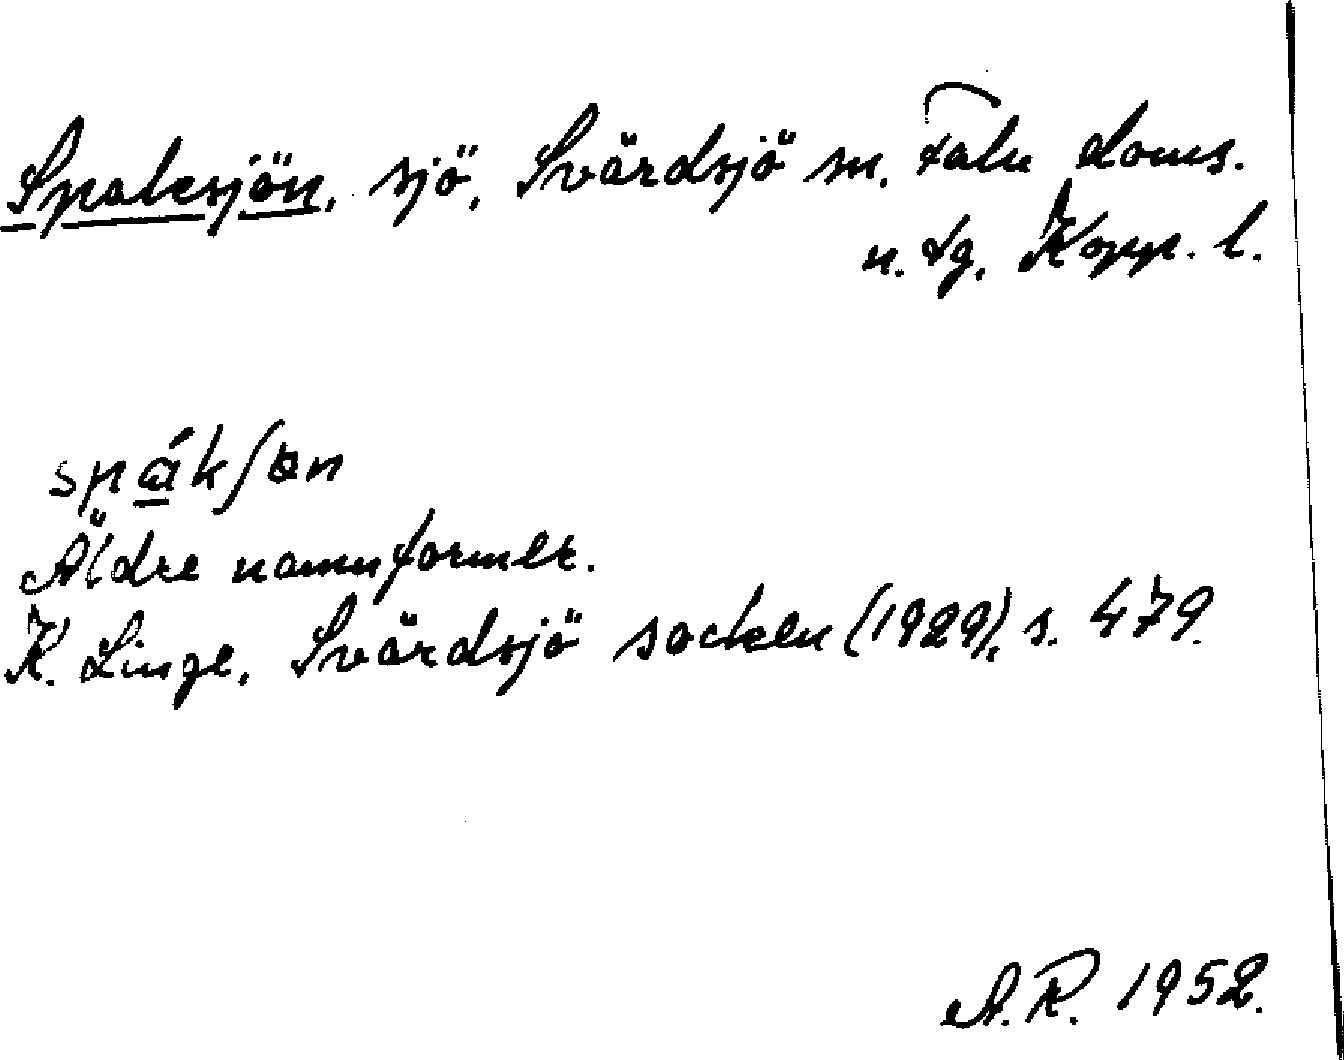 Spaksjön, sjö, Svärdsjö sn, Falu doms.
n. tg, Kopp. l.
spákʃɵn
Äldre namnformer.
K. Linge, Svärdsjö socken (1929), s. 479.
A.R. 1952.